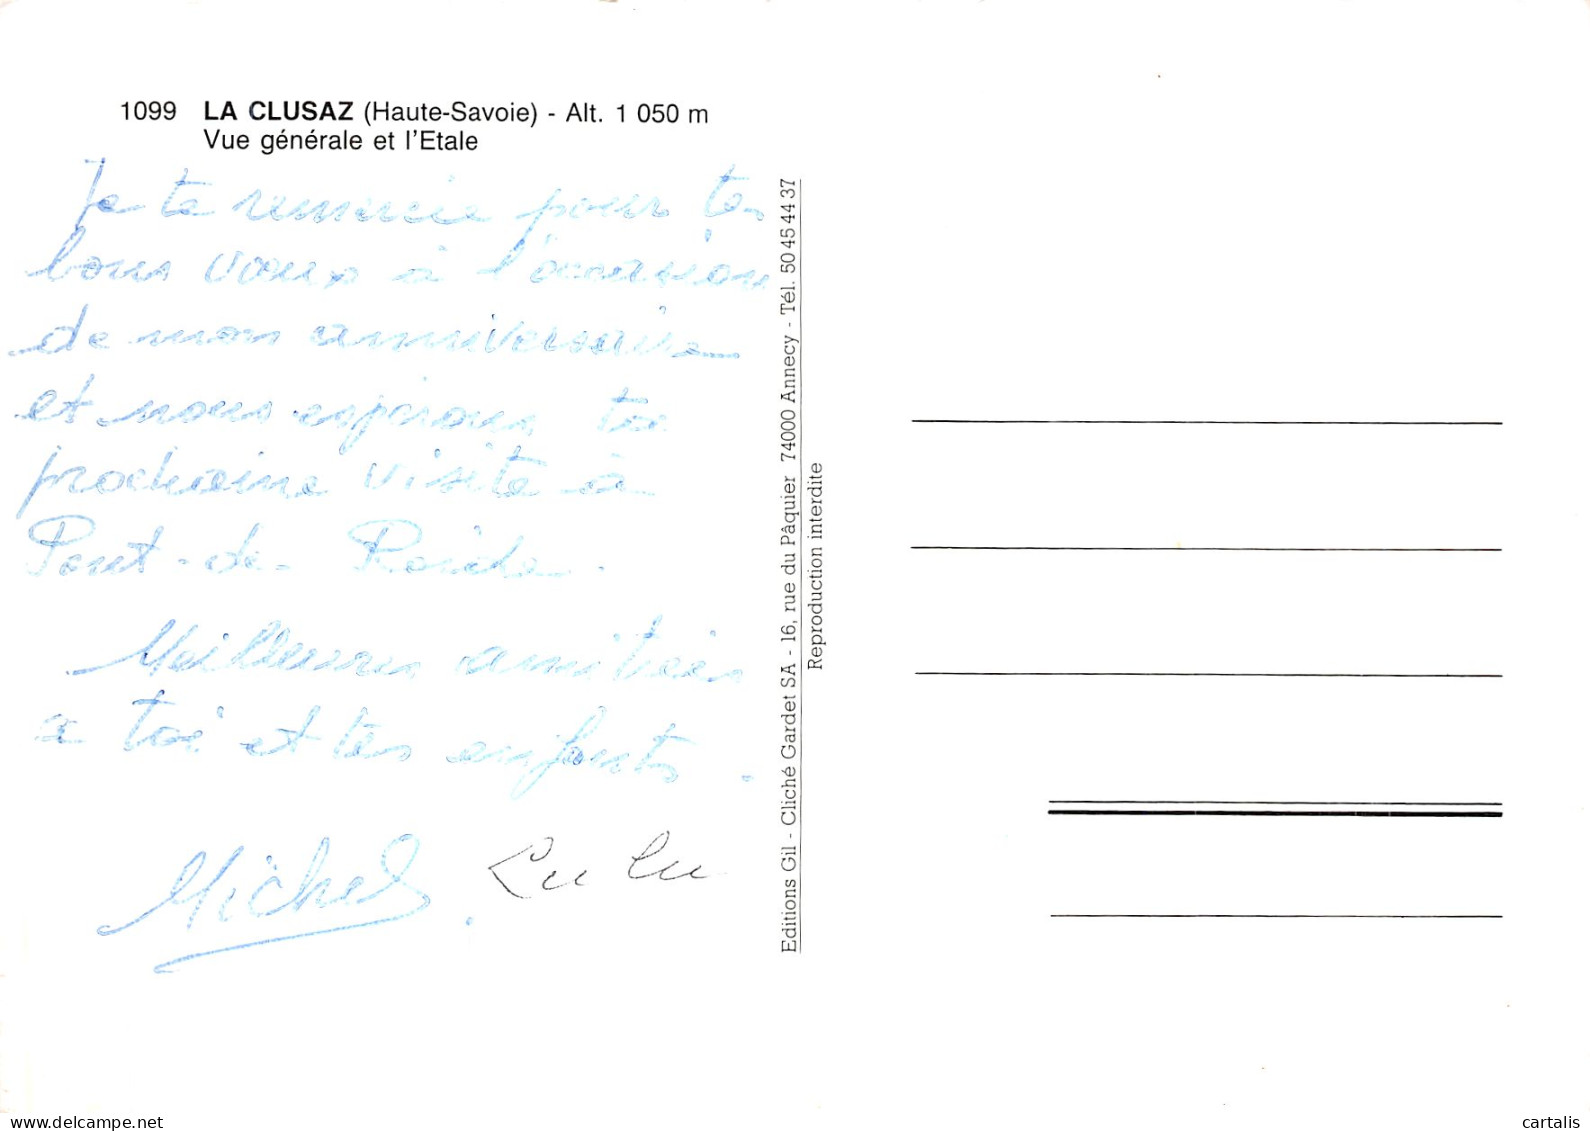 1099 LA CLUSAZ (Haute-Savoie) - Alt. 1 050 m
Vue générale et l'Etale
Je te remercie pour tes
bons vœux à l'occasion
de mon anniversaire
et nous espérons ta
prochaine visite à
Pont-de-Roide.
Meilleures amitiés
a toi et tes enfants.
Michel. Lulu
Editions Gil - Cliché Gardet SA - 16, rue du Pâquier 74000 Annecy - Tél. 50 45 44 37
Reproduction interdite
delcampe.net
cartalis